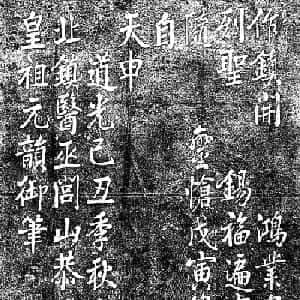 作鎮開 鴻業
列聖 錫福遍
隨 鑾憶戊寅
自
天申
道光己丑季秋
北鎮醫巫閭山恭
皇祖元韻御筆